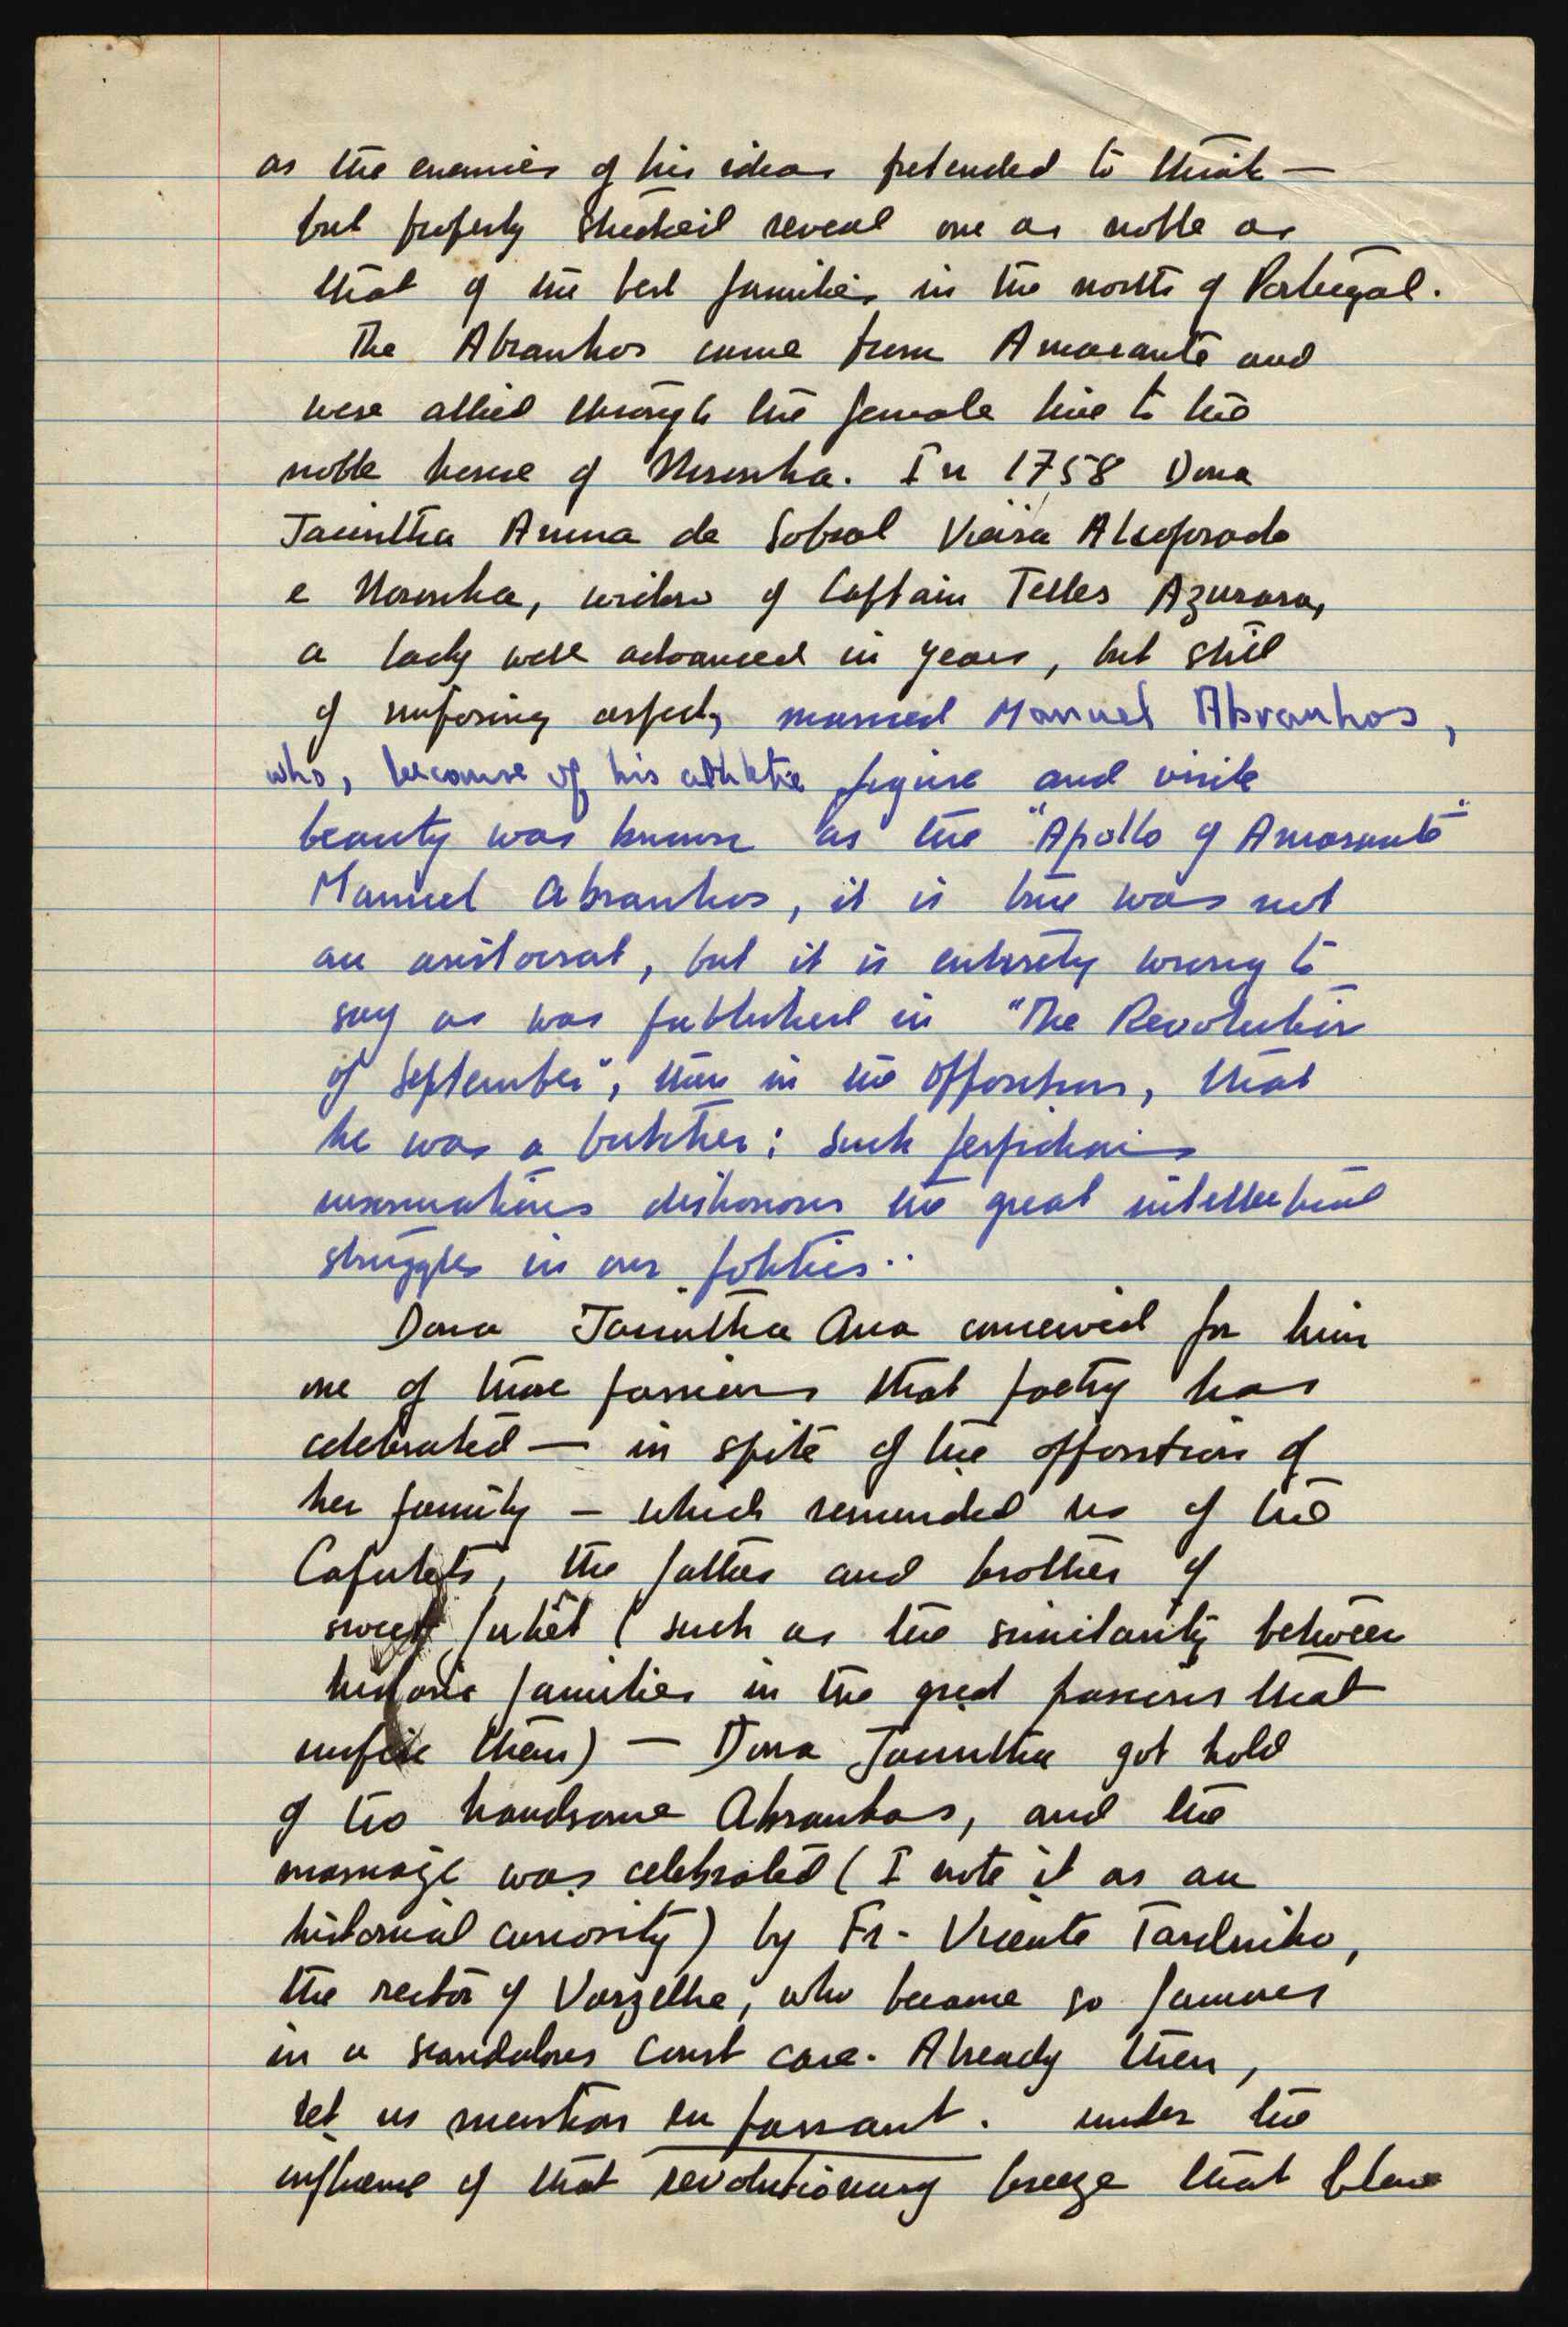 as the enemies of his ideas pretended to think —
but properly studied reveal one as noble as
that of the best families in the north of Portugal.
The Abranhos came from Amarante and
were allied through the female line to the
noble house of Noronha. In 1758 Dona
Jacintha Anna de Sobral Vieira Alcoforado
e Noronha, widow of Captain Telles Azurara,
a lady well advanced in years, but still
of imposing aspect, married Manuel Abranhos,
who, because of his athletic figure and virile
beauty was known as the "Apollo of Amarante"
Manuel Abranhos, it is true was not
an aristocrat, but it is entirely wrong to
say as was published in "The Revolution
of September", then in the opposition, that
he was a butcher: such perfidious
insinuations dishonour the great intellectual
struggles in our politics..
Dona Jacintha Ana conceived for him
one of those passions that poetry has
celebrated — in spite of the opposition of
her family — which reminded us of the
Capulets, the father and brother of
sweet Juliet (such as the similarity between
historic families in the great passions that
unite them) — Dona Jacintha got hold
of the handsome Abranhos, and the
marriage was celebrated (I note it as an
historical curiosity) by Fr. Vicente Tardinho,
the rector of Varzelha, who became so famous
in a scandalous court case. Already then,
let us mention en passant. under the
influence of that revolutionary breeze that blew